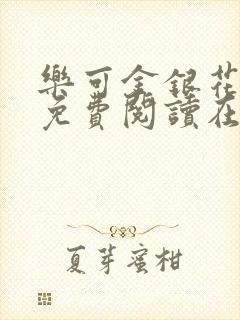 樂可金銀花
免費閱讀在
夏芽蜜柑